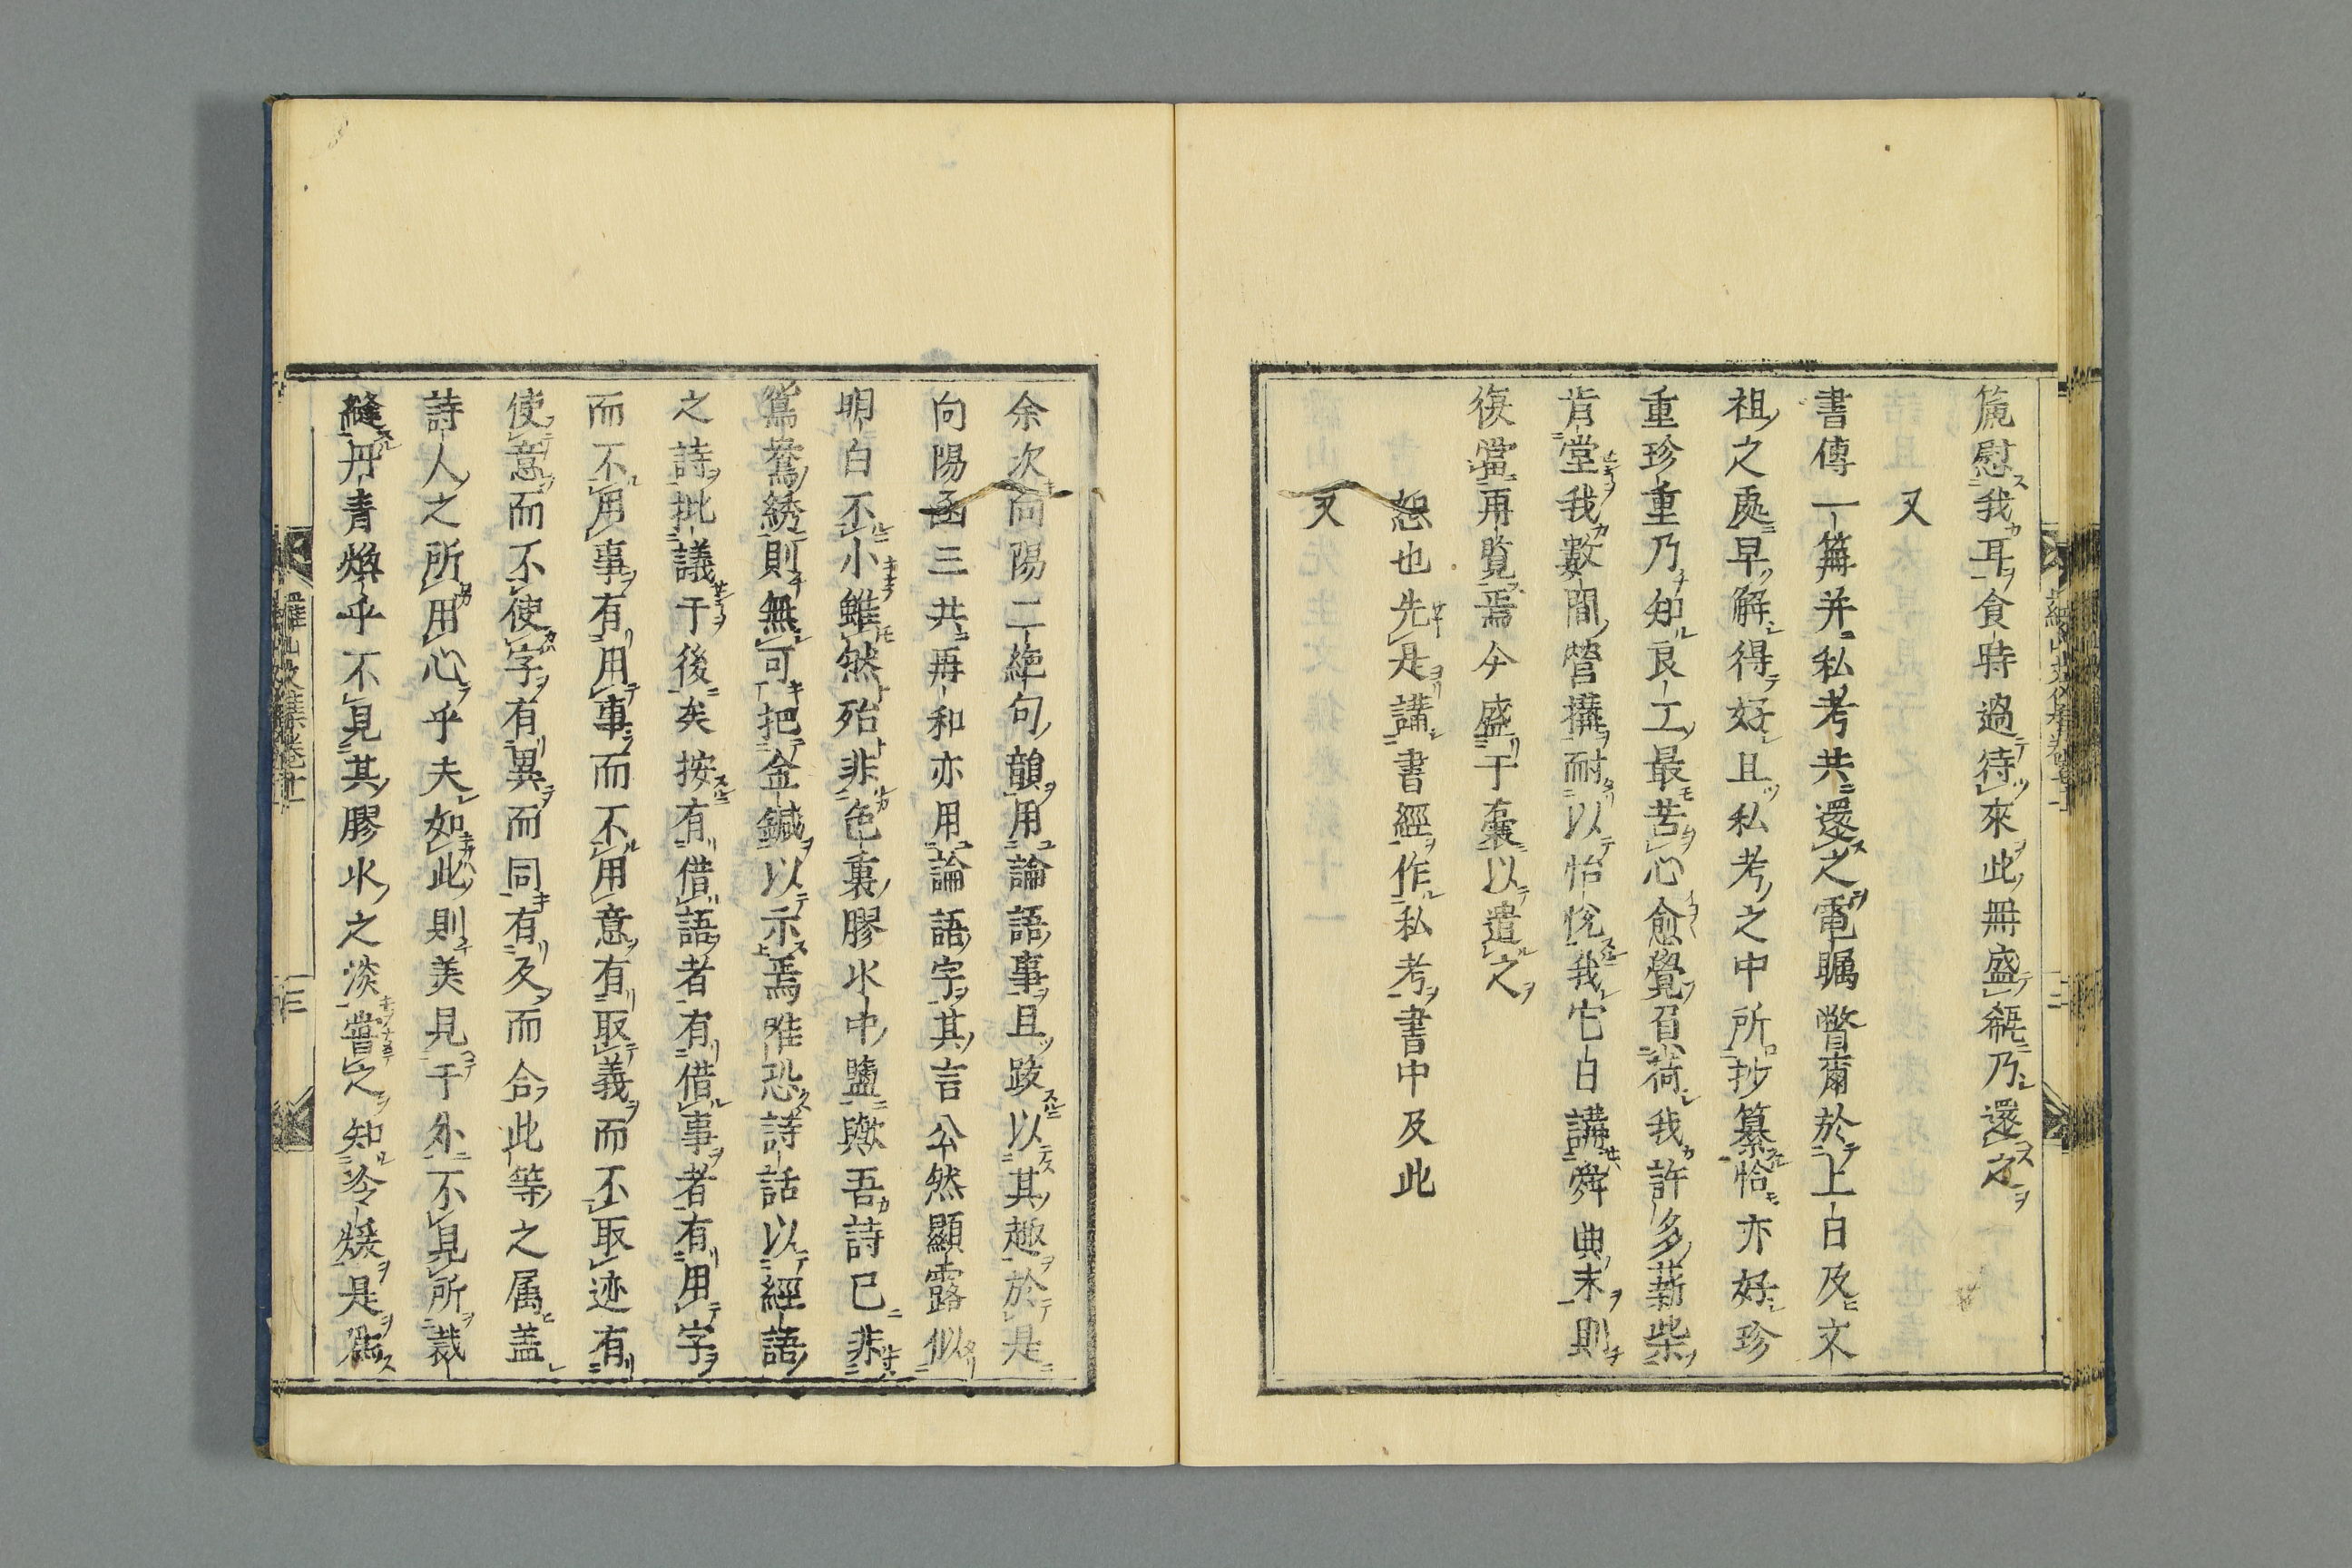 篪慰我耳食時過待來此冊盛瓻乃還之
又
書傳一篇并私考共還之電矚瞥爾於上白及文
祖之處早解得好且私考之中所抄纂恰亦好珍
重珍重乃知良工最苦心愈覺負荷我許多薪柴
肯堂我數間營搆耐以怡悅我它白講舜典末則
復當再覧焉今盛于囊以遣之
恕也先是講書經作私考書中及此
又
余次向陽二絶句韻用論語事且跋以其趣於是
向陽函三共再和亦用論語字其言公然顯露似
明白不小雖然殆非色裏膠水中鹽歟吾詩已非
鴛鴦綉則無可把金鍼以示焉唯恐詩話以經語
之詩批議于後矣按有借語者有借事者有用字
而不用事有用事而不用意有取義而不取迹有
使意而不使字有異而同有反而合此等之属盖
詩人之所用心乎夫如此則美見于外不見所裁
縫丹青煥乎不見其膠水之淡嘗之知冷煖是爲
羅山文集卷十一
三